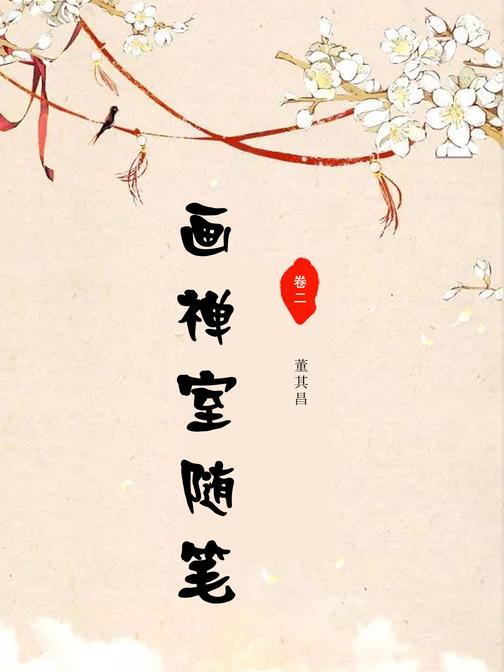 画禅室随笔
卷二
董其昌